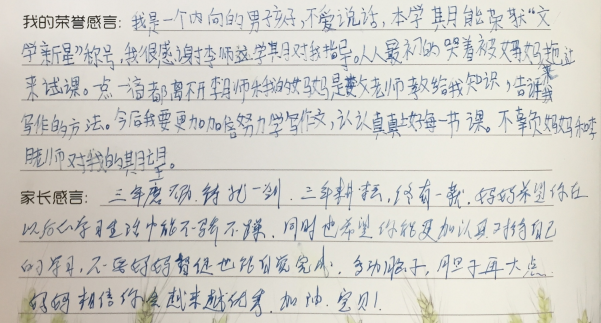 我的荣誉感言：我是一个内向的男孩子，不爱说话，本学期能荣获“文
学新星”称号，我很感谢李师这学期对我指导。从最初的哭着被妈妈拖过
来试课。点一滴都离不开李师和我的妈妈是老师教给我知识，告诉我
写作的方法。今后我要更加加倍努力学写作文，认认真真上好每一节课。不辜负妈妈和李
老师对我的期望。
家长感言：三年磨一剑。三年耕耘，终有一获，妈妈希望你在
以后的学习生活中能不骄不躁，同时也希望你能更加认真对待自己
的学习，不要妈妈督促也能自觉完成，多动脑子，胆子再大点
妈妈相信你会越来越优秀，加油，宝贝！